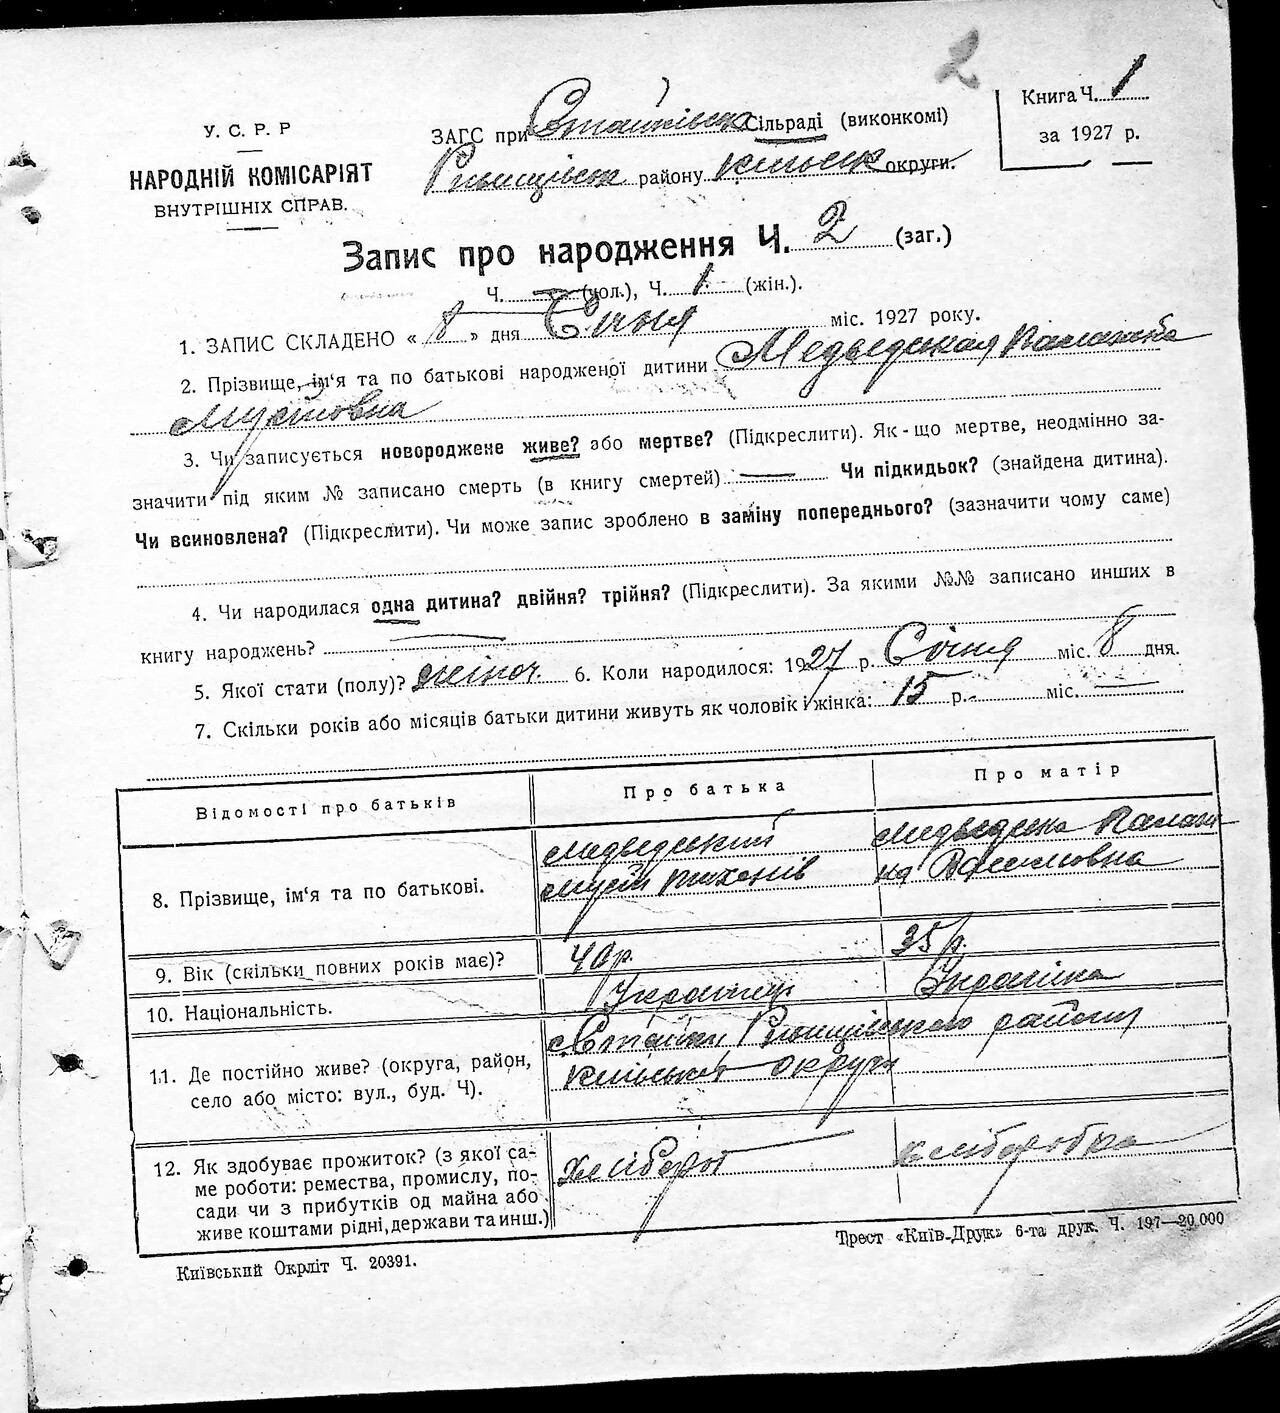 2
У. С. Р. Р
НАРОДНІЙ КОМІСАРІЯТ
ВНУТРІШНІХ СПРАВ.
ЗАГС при Стайківськ Сільраді (виконкомі)
Ржищівськ району Київськ округи.
Книга Ч. 1
за 1927 р.
Запис про народження Ч. 2 (заг.)
Ч. — (чол.), Ч. 1 (жін.).
1. ЗАПИС СКЛАДЕНО « 8 » дня Січня міс. 1927 року.
2. Прізвище, ім'я та по батькові народженої дитини Медведская
Мусіовна
3. Чи записується новороджене живе? або мертве? (Підкреслити). Як-що мертве, неодмінно за-
значити під яким № записано смерть (в книгу смертей) — Чи підкидьок? (знайдена дитина).
Чи всиновлена? (Підкреслити). Чи може запис зроблено в заміну попереднього? (зазначити чому саме)
4. Чи народилася одна дитина? двійня? трійня? (Підкреслити). За якими №№ записано инших в
книгу народжень? —
5. Якої стати (полу)? жіноч. 6. Коли народилося: 1927 р. Січня міс. 8 дня.
7. Скільки років або місяців батьки дитини живуть як чоловік і жінка: 15 р. - міс. —
Відомості про батьків
Про батька
Про матір
8. Прізвище, ім'я та по батькові.
Медведський
Мусій Тихонів
Медведська
9. Вік (скільки повних років має)?
40 р.
35 р.
10. Національність.
Українець
Українка
11. Де постійно живе? (округа, район,
село або місто: вул., буд. Ч).
с. Стайки Ржищівського району
Київської округи
12. Як здобуває прожиток? (з якої са-
ме роботи: ремества, промислу, по-
сади чи з прибутків од майна або
живе коштами рідні, держави та инш.)
Хлібороб
хліборобка
Київський Окрліт Ч. 20391.
Трест «Київ-Друк» 6-та друк. Ч. 197—20.000